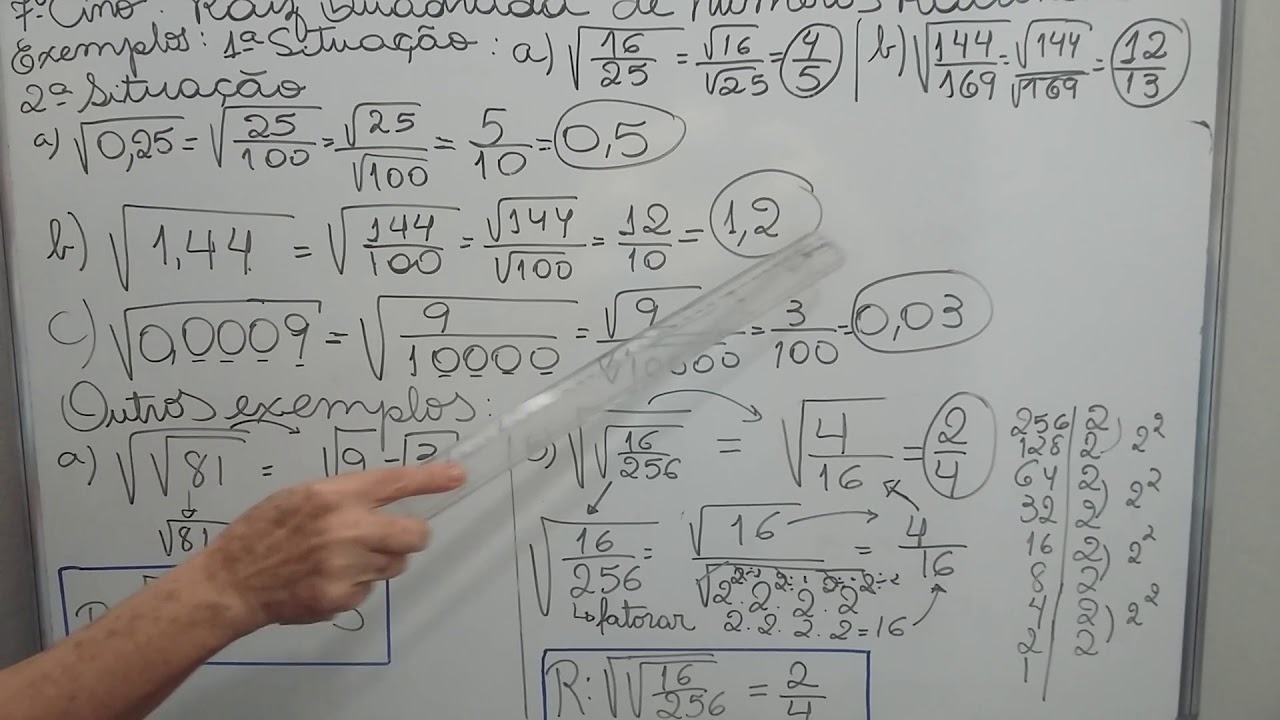 7º Ano: Raiz Quadrada de números
Exemplos: 1ª Situação: a) √(16/25) = √16/√25 = 4/5 | b) √(144/169) = √144/√169 = 12/13
2ª Situação
a) √0,25 = √(25/100) = √25/√100 = 5/10 = 0,5
b) √1,44 = √(144/100) = √144/√100 = 12/10 = 1,2
c) √0,0009 = √(9/10000) = √9/√10000 = 3/100 = 0,03
Outros exemplos:
a) √√81 = √9
√81
√√(16/256) = √(4/16) = 2/4
√(16/256) = √16/√(2^2÷2 . 2^2÷2 . 2^2÷2 . 2^2÷2) = 4/16
↳ fatorar 2.2.2.2 = 16
R: √√(16/256) = 2/4
256 | 2
128 | 2) 2²
64 | 2
32 | 2) 2²
16 | 2
8 | 2) 2²
4 | 2
2 | 2) 2²
1